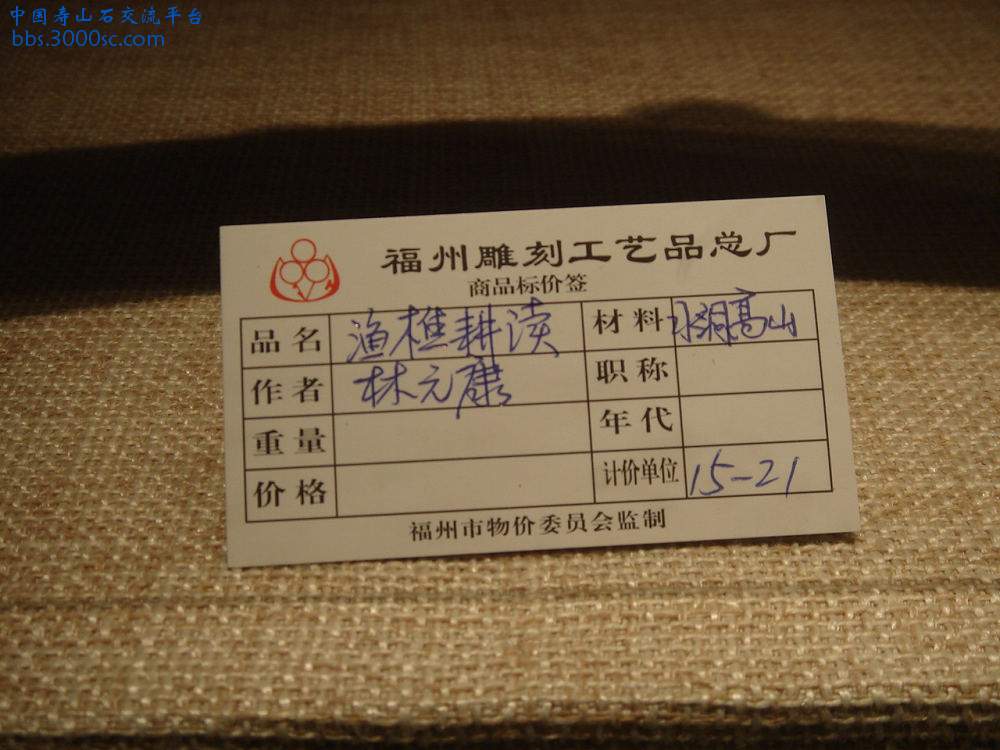 中国寿山石交流平台
bbs.3000sc.com
福州雕刻工艺品总厂
商品标价签
品名 渔樵耕渎 材料 水洞高山
作者 林元康 职称
重量 年代
价格 计价单位 15-21
福州市物价委员会监制